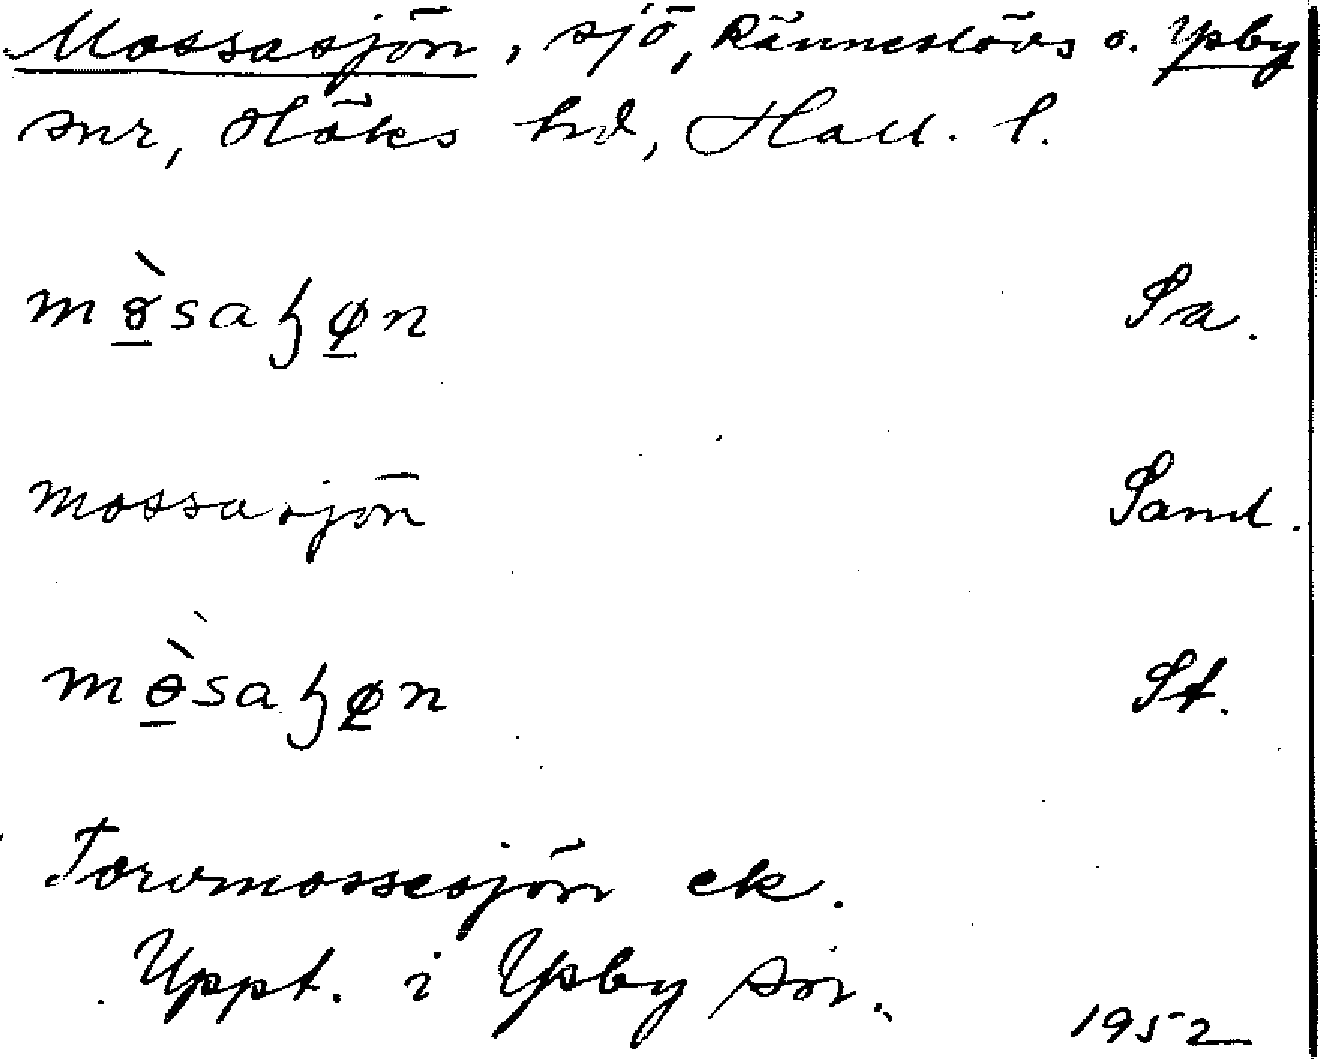 Mossasjön, sjö, Ränneslövs o. Ysby
snr, Höks hd, Hall. l.
Sa.
mossasjön Sand.
St.
Torvmossesjön ek.
Uppt. i Ysby sn.
1952